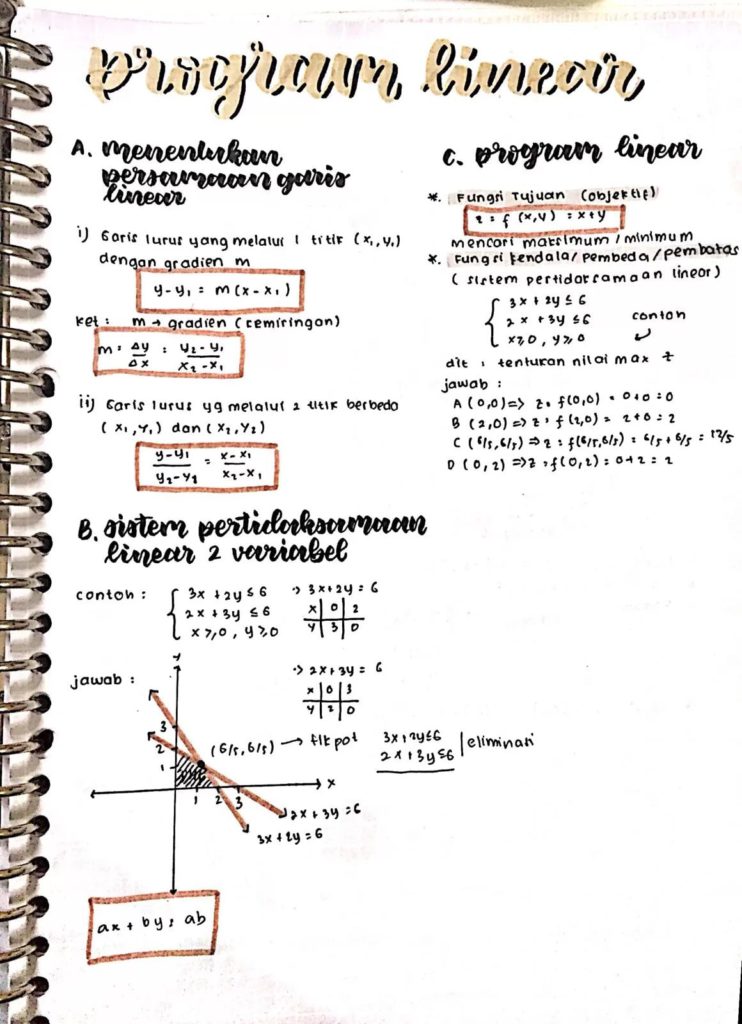 program linear
A. menentukan
persamaan garis
linear
i) Garis lurus yang melalui 1 titik (x₁, y₁)
dengan gradien m
y-y₁ = m(x-x₁)
ket: m → gradien (kemiringan)
m = Δy/Δx = y₂-y₁/x₂-x₁
ii) Garis lurus yg melalui 2 titik berbeda
(x₁, y₁) dan (x₂, y₂)
y-y₁/y₂-y₁ = x-x₁/x₂-x₁
B. sistem pertidaksamaan
linear 2 variabel
contoh :
3x + 2y ≤ 6
2x + 3y ≤ 6
x ≥ 0, y ≥ 0
→ 3x+2y = 6
x 0 2
y 3 0
jawab :
→ 2x+3y = 6
x 0 3
y 2 0
y
3
2
1
(6/5, 6/5) → tik pot
3x+2y≤6
2x+3y≤6
eliminasi
x
1 2 3
2x + 3y = 6
3x + 2y = 6
ax + by = ab
C. program linear
*. Fungsi Tujuan (objektif)
z = f(x,y) = x+y
mencari maksimum/minimum
*. Fungsi kendala/pembeda/pembatas
(sistem pertidaksamaan linear)
3x + 2y ≤ 6
2x + 3y ≤ 6
x ≥ 0, y ≥ 0
contoh
dit : tentukan nilai max z
jawab :
A (0,0) => z = f(0,0) = 0+0 = 0
B (2,0) => z = f(2,0) = 2+0 = 2
C (6/5, 6/5) => z = f(6/5, 6/5) = 6/5 + 6/5 = 12/5
D (0,2) => z = f(0,2) = 0+2 = 2